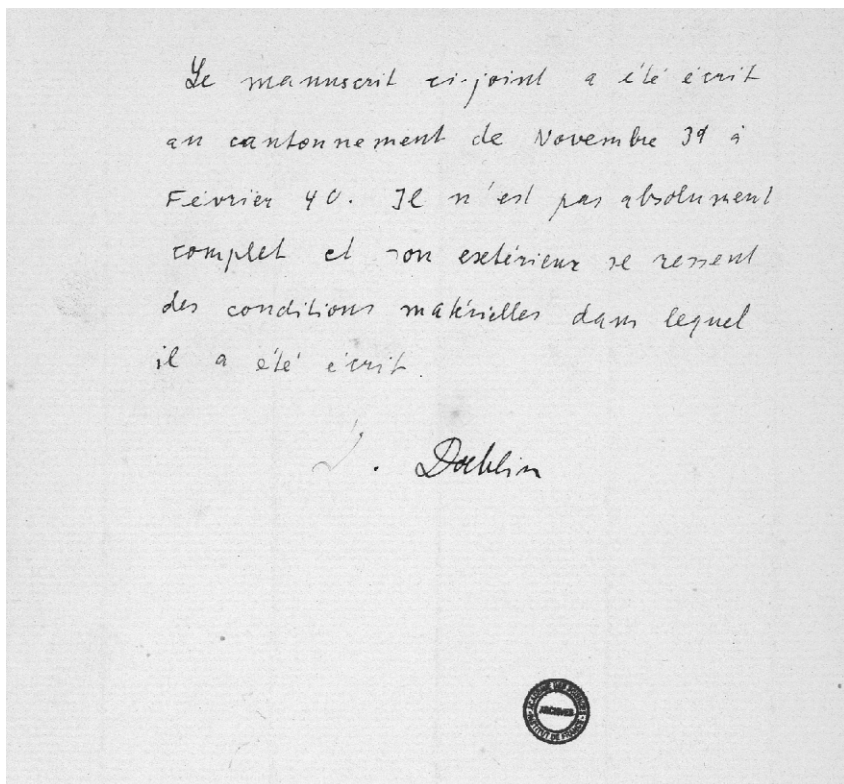 Le manuscrit ci-joint a été écrit
au cantonnement de Novembre 39 à
Février 40. Il n'est pas absolument
complet et son extérieur se ressent
des conditions matérielles dans lequel
il a été écrit.
Doeblin
ACADÉMIE DES SCIENCES
ARCHIVES
INSTITUT DE FRANCE